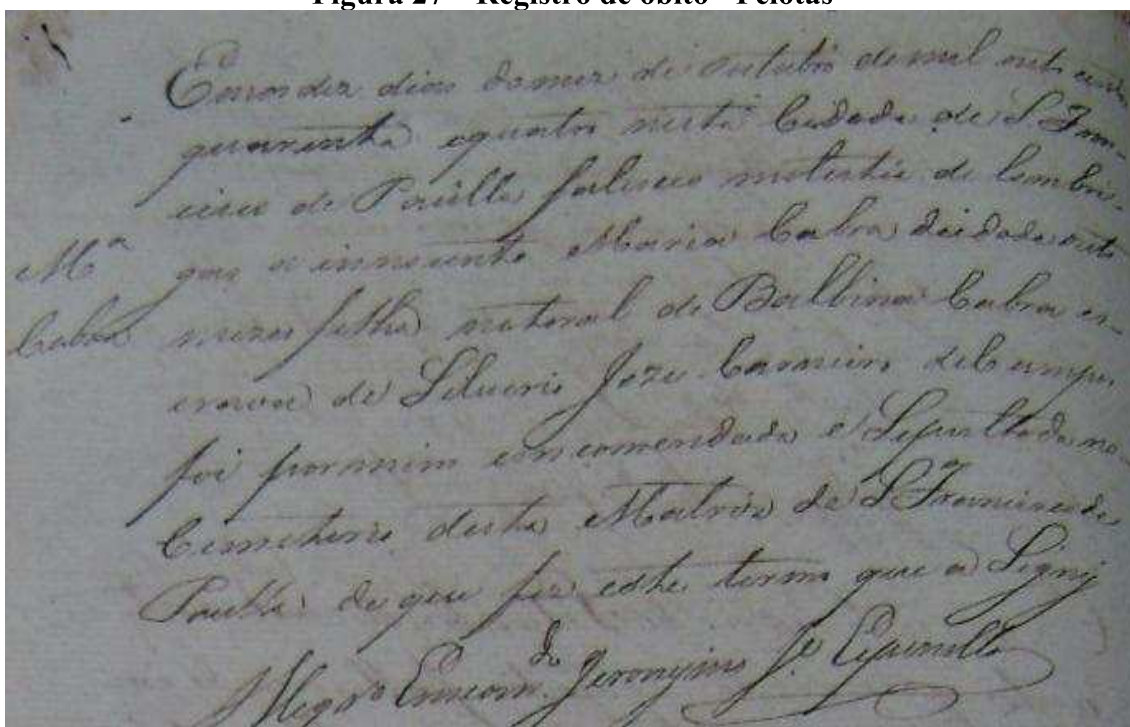 Figura 27 – Registro de óbito - Pelotas
Em os dez dias do mez de outubro de mil oito centos
quarenta e quatro nesta Cidade de S. Fran-
cisco de Paulla faleceo molestia de Lombri-
Mª gas a innocente Maria Cabra de idade oito
Cabra mezes filha natural de Balbina Cabra es-
crava de Joze Carneiro de Campos
foi por mim emcomendada e Sepultada no
Cemiterio desta Matriz de S. Francisco de
Paulla de que fiz este termo que a Signei
Encomdo Jeronymo Je Espinolla